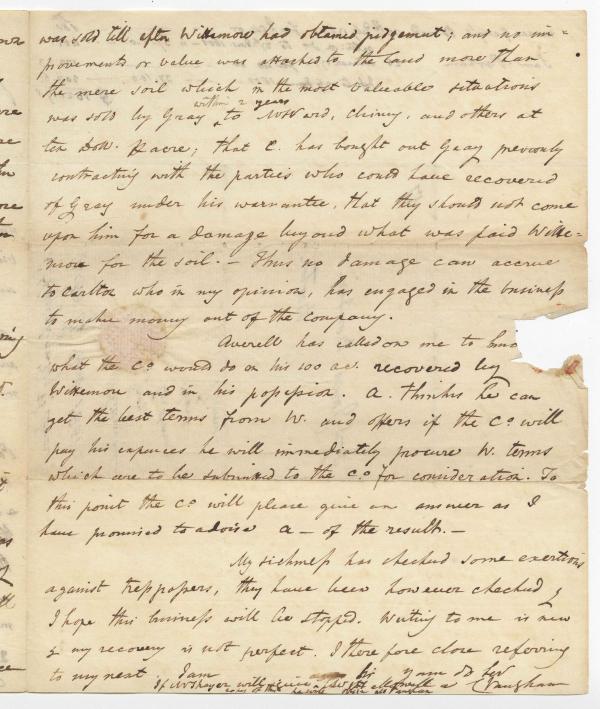 was sold till after Wittemore had obtained judgement; and no im-
provements or value was attached to the land more than
the mere soil which in the most valuable situations
within 2 years
was sold by Gray to Ward, Chiney, and others at
ten Doll. pacre; that C. has bought out Gray previously
contracting with the parties who could have recovered
of Gray under his warrantee, that they should not come
upon him for a damage beyond what was paid Witte=
more for the soil. — Thus no damage can accrue
to Carlton who in my opinion, has engaged in the business
to make money out of the company.
Averell has called on me to kno
what the Co. would do on his 100 ac. recovered by
Wittemore and in his possession. A. thinks he can
get the best terms from W. and offers if the Co. will
pay his expences he will immediately procure W. terms
which are to be submitted to the Co. for consideration. To
this point the Co. will please give an answer as I
have promised to advise A — of the result. —
My sickness has checked some exertions
against trespassers, they have been however checked &
I hope this business will be stopped. Writing to me is new
& my recovery is not perfect. I therefore close referring
to my next I am Sir your ob Ser
C Vaughan
If Mr Thayer will give